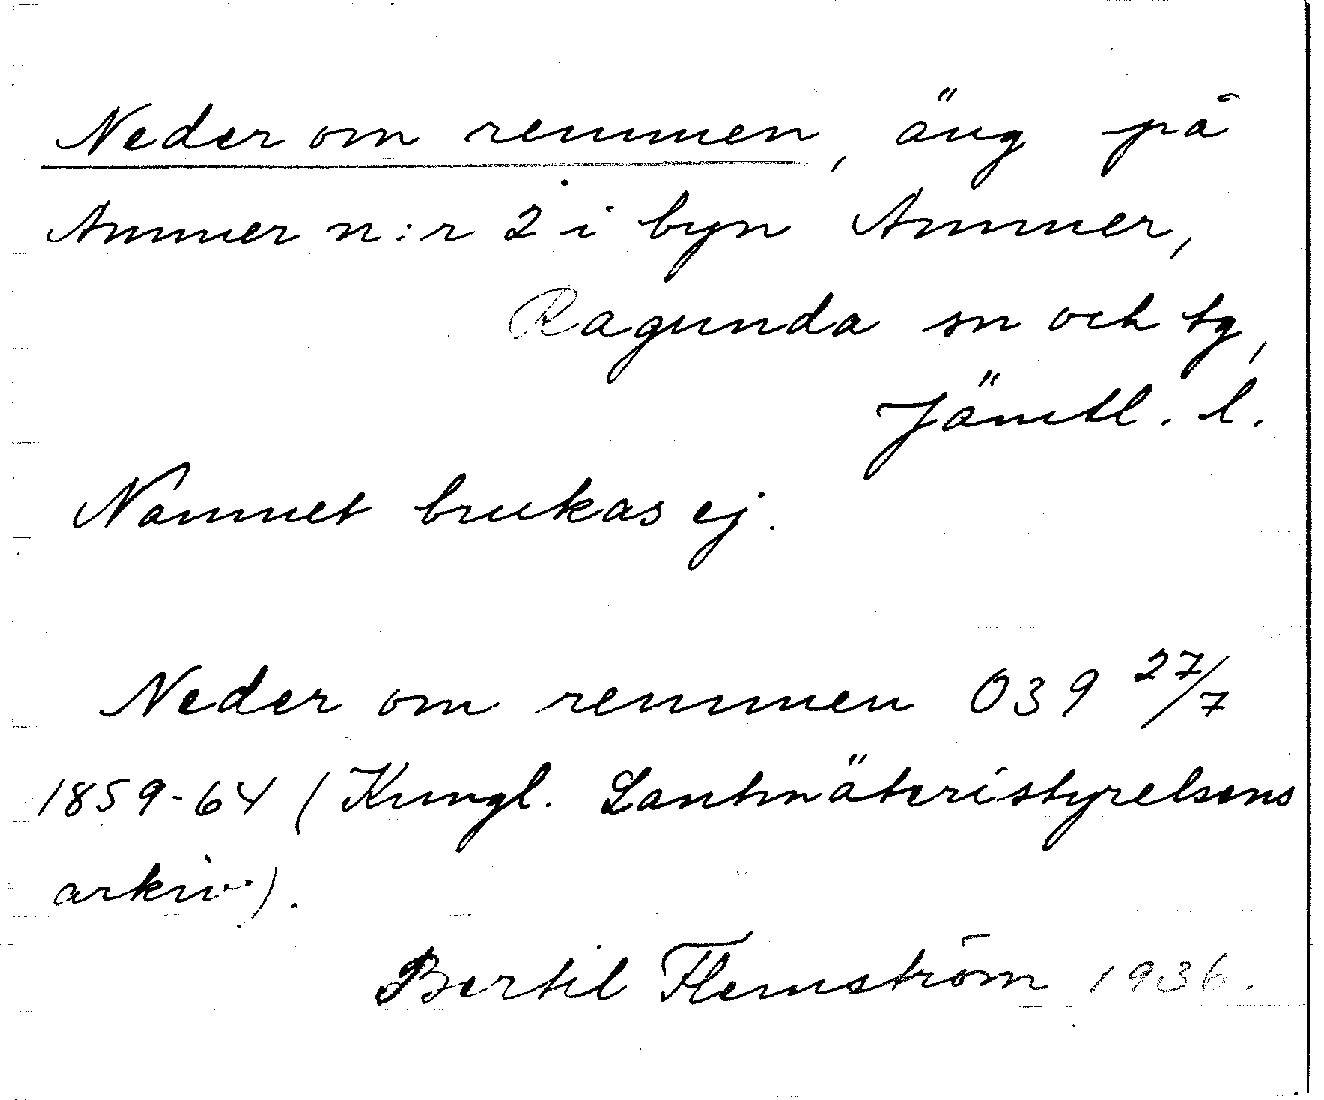 Neder om remmen, äng på
Ammer n:r 2 i byn Ammer,
Ragunda sn och tg,
Jämtl. l.
Namnet brukas ej.
Neder om remmen O39 27/7
1859-64 (Kungl. Lantmäteristyrelsens
arkiv).
Bertil Flemström 1936.